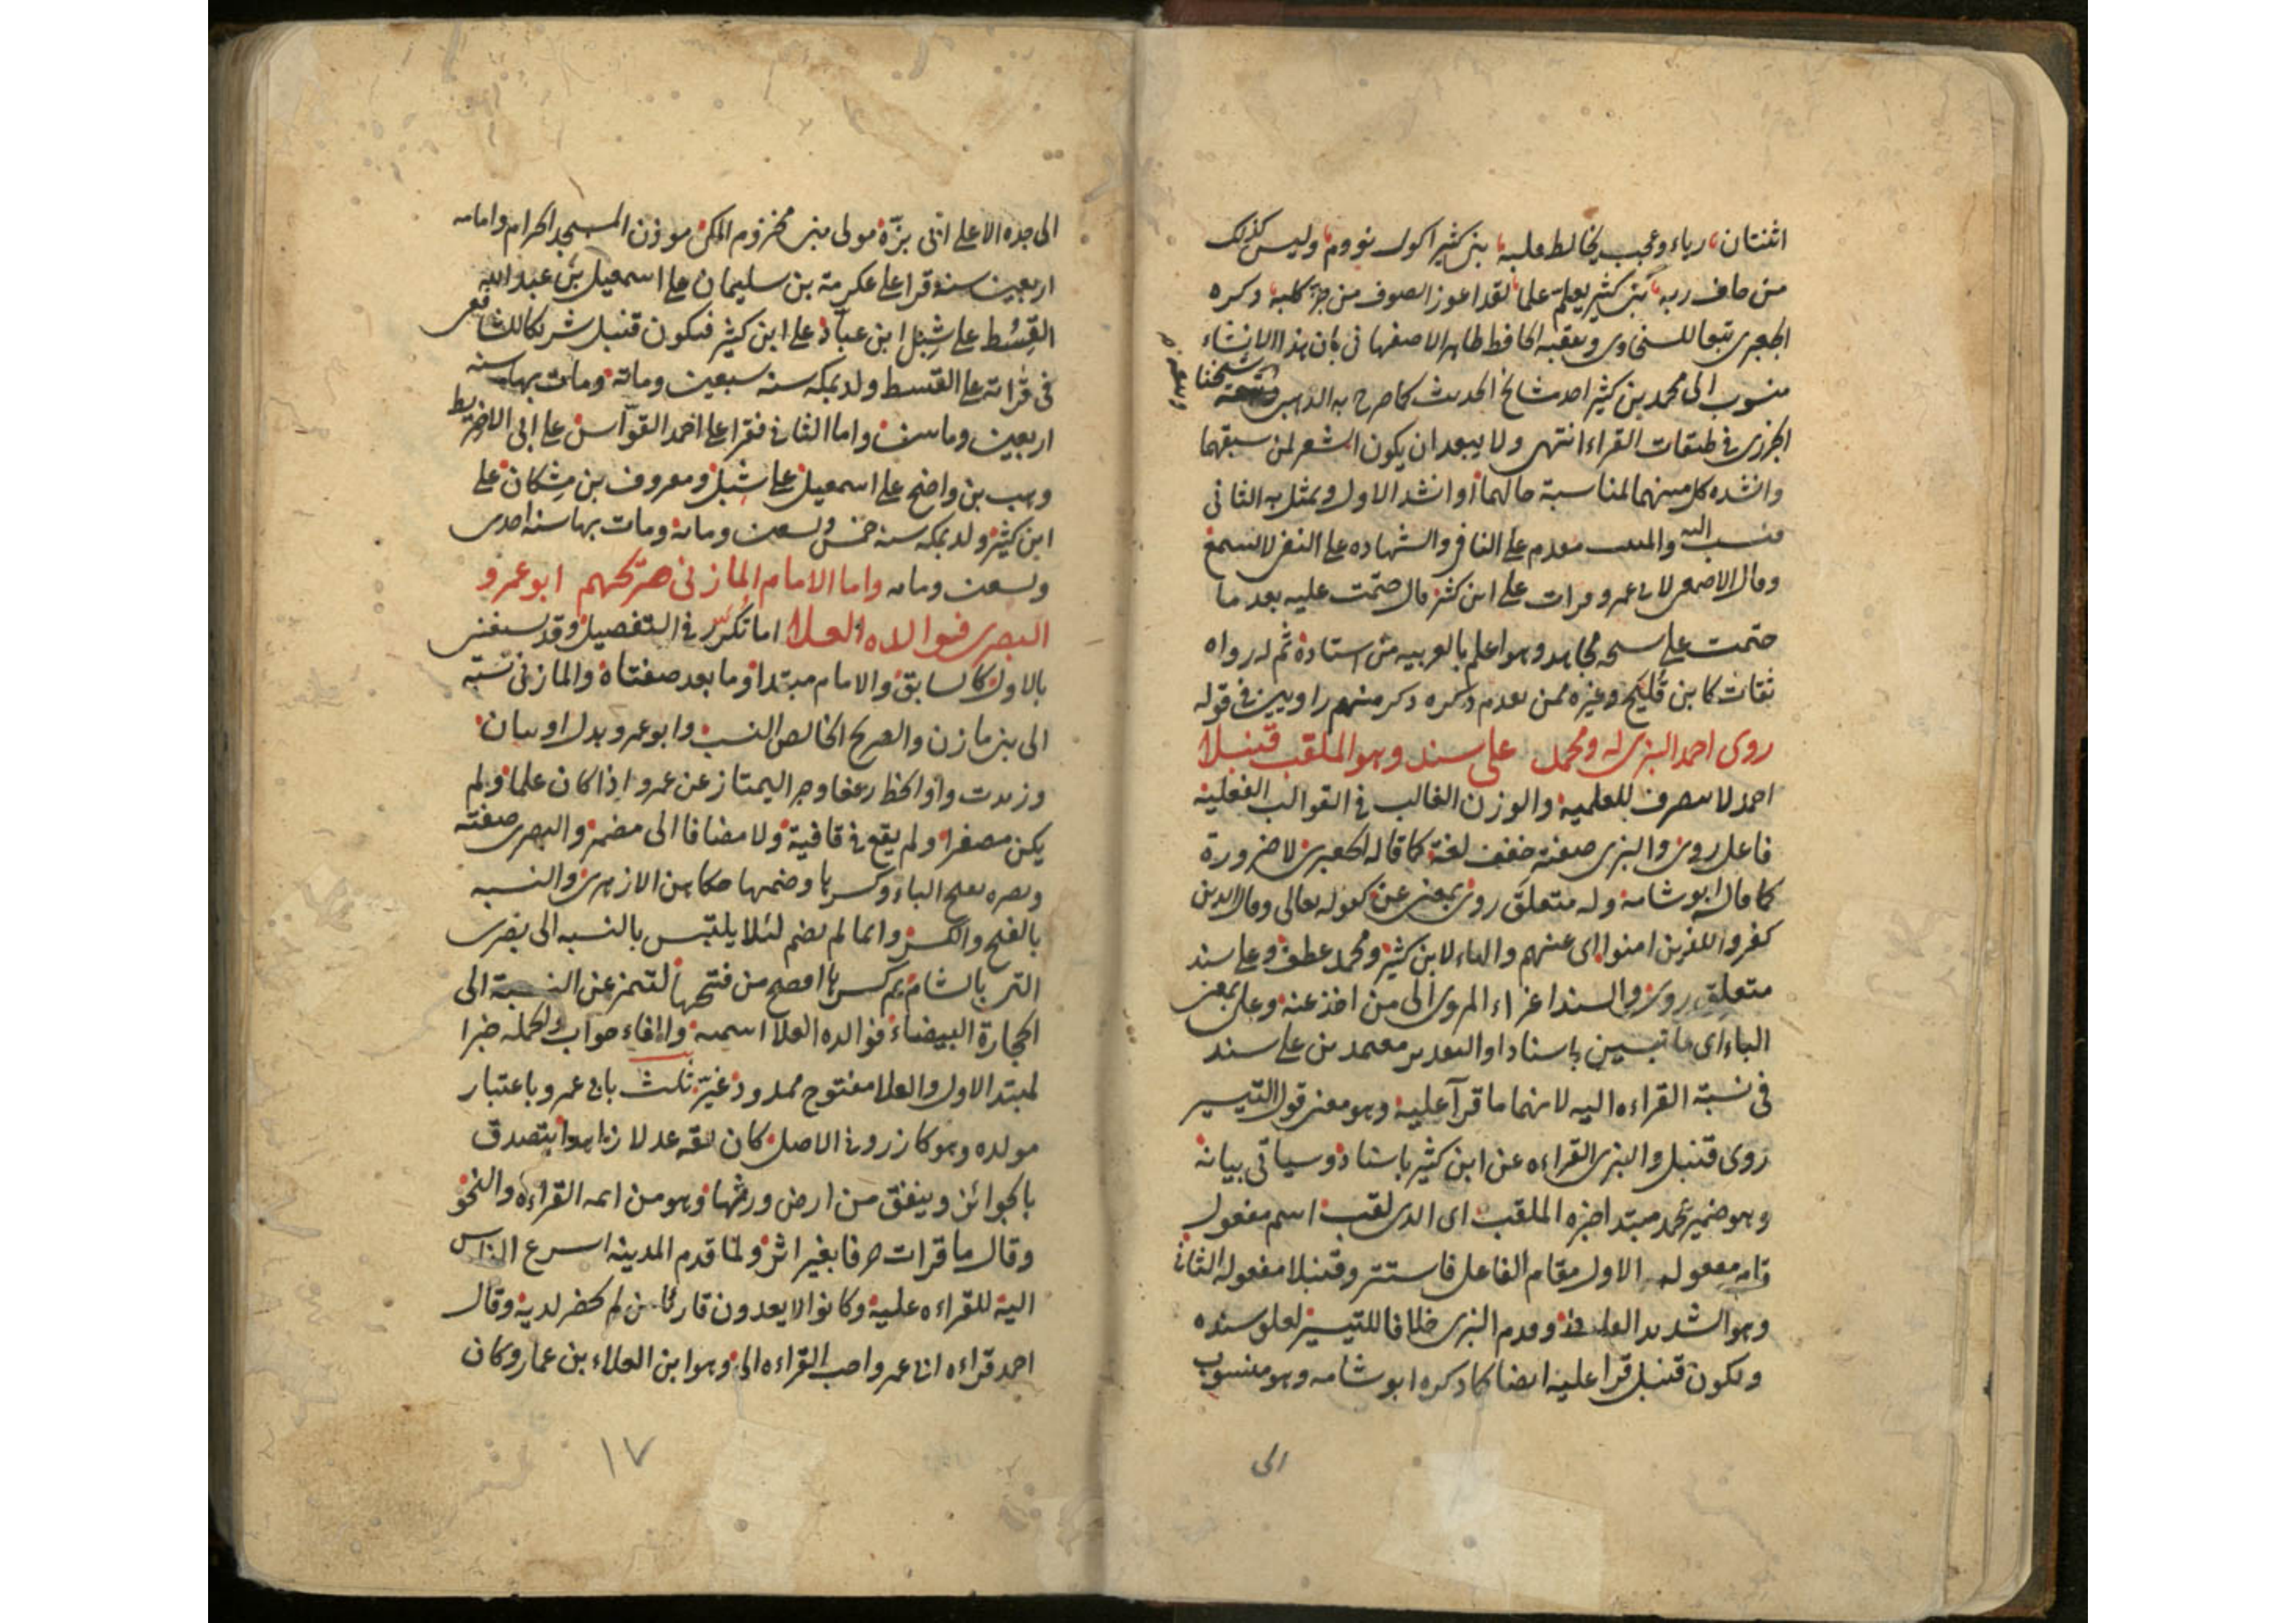 اثنتان رياء وعجب يخالط قلبه بني كثير اكول نووم وليس كذلك
من خاف ربه بني كثير يعلم علما لقد اعوز الصوف من جز كلبه ذكره
الجعبرى تبعا للسخاوى وتعقبه الحافظ طاهر الاصفهانى بان هذا الانشاء
منسوب الى محمد بن كثير احد مشائخ الحديث كما صرح به الذهبى شيخنا
الجزرى فى طبقات القراء انتهى ولا يبعد ان يكون الشعر لمن سبقهما
وانشده كل منهما لمناسبة حالهما او انشد الاول وتمثل به الثانى
فنسب اليه والمثبت مقدم على النافى والشهاده على النفى لا تسمع
وقال الاصمعى لابى عمرو قرات على ابن كثير قال ختمت عليه بعد ما
ختمت على مجاهد وهو اعلم بالعربيه من استاده ثم له رواه
ثقات كابن فليح وغيره ممن تقدم ذكره ذكر منهم راويين فى قوله
روى احمد البزى له ومحمد على سند وهو الملقب قنبلا
احمد لا ينصرف للعلمية والوزن الغالب فى القوالب الفعليه
فاعل روى والبزى صفته خفف لغة كما قاله الجعبرى لا ضرورة
كما قال ابو شامة وله متعلق روى بمعنى عن كقوله تعالى وقال الذين
كفروا للذين امنوا اى عنهم والهاء لابن كثير ومحمد عطف وعلى سند
متعلق روى والسند اعزاء المروى الى من اخذ عنه وعلى بمعنى
الباء اى ملتبسين باسناد او التقدير معتمدين على سند
فى نسبة القراءه اليه لانهما ما قرآ عليه وهو معنى قول التيسير
روى قنبل والبزى القراءه عن ابن كثير باسناد وسياتى بيانه
وهو ضمير محمد مبتدا خبره الملقب اى الذى لقب اسم مفعول
مفعوله الاول مقام الفاعل فاستتر وقنبلا مفعوله الثانى
وهو الشديد الغليظ وقدم البزى خلافا للتيسير لعلو سنده
ولكون قنبل قرا عليه ايضا كما ذكره ابو شامه وهو منسوب
الى
الى جده الاعلى ابى بزة مولى بنى مخزوم المكى موذن المسجد الحرام وامامه
اربعين سنة قرا على عكرمة بن سليمان على اسمعيل بن عبد الله
القسط على شبل ابن عباد على ابن كثير فيكون قنبل شريكا للشافعى
فى قراته على القسط ولد بمكه سنه سبعين ومائة ومات بها سنه
اربعين ومائتين واما الثانى فقرا على احمد القواس على ابى الاخريط
وهب بن واضح على اسمعيل على شبل ومعروف بن مشكان على
ابن كثير ولد بمكه سنه خمس وتسعين ومائة ومات بها سنه احدى
وتسعين ومائه واما الامام المازنى صريحهم ابو عمرو
البصرى فوالده العلا اما تكرر فى التفصيل وقد يستغنى
بالاول كالسابق والامام مبتدا وما بعد صفتاه والمازنى نسبه
الى بنى مازن والصريح الخالص النسب وابو عمرو بدل او بيان
وزيدت واو الخط رفعا وجرا ليمتاز عن عمر واذا كان علما ولم
يكن مصغرا ولم يقع فى قافية ولا مضافا الى مضمر والبصرى صفته
وبصره بفتح الباء وكسرها وضمها حكاهن الازهرى والنسبه
بالفتح والكسر وانما لم يضم لئلا يلتبس بالنسبه الى بصرى
التى بالشام ثم كسرها افصح من فتحها لتميز عن النسبة الى
الحجارة البيضاء فوالده العلا اسمية والفاء جواب والجمله خبر
لمبتدا الاول والعلا مفتوح ممدود ثلث بابى عمرو باعتبار
مولده وهو كازرونى الاصل كان ثقه عدلا زاهدا يتصدق
بالجوائز وينفق من ارض ورثها وهو من ائمه القراءه والنحو
وقال ما قرات حرفا بغير اثر ولما قدم المدينه اسرع الناس
اليه للقراءه عليه وكانوا لا يعدون قارئا من لم يحضر لديه وقال
احمد قراءه ابى عمرو احب القراءه الى وهو ابن العلاء بن عمار وكان
١٧